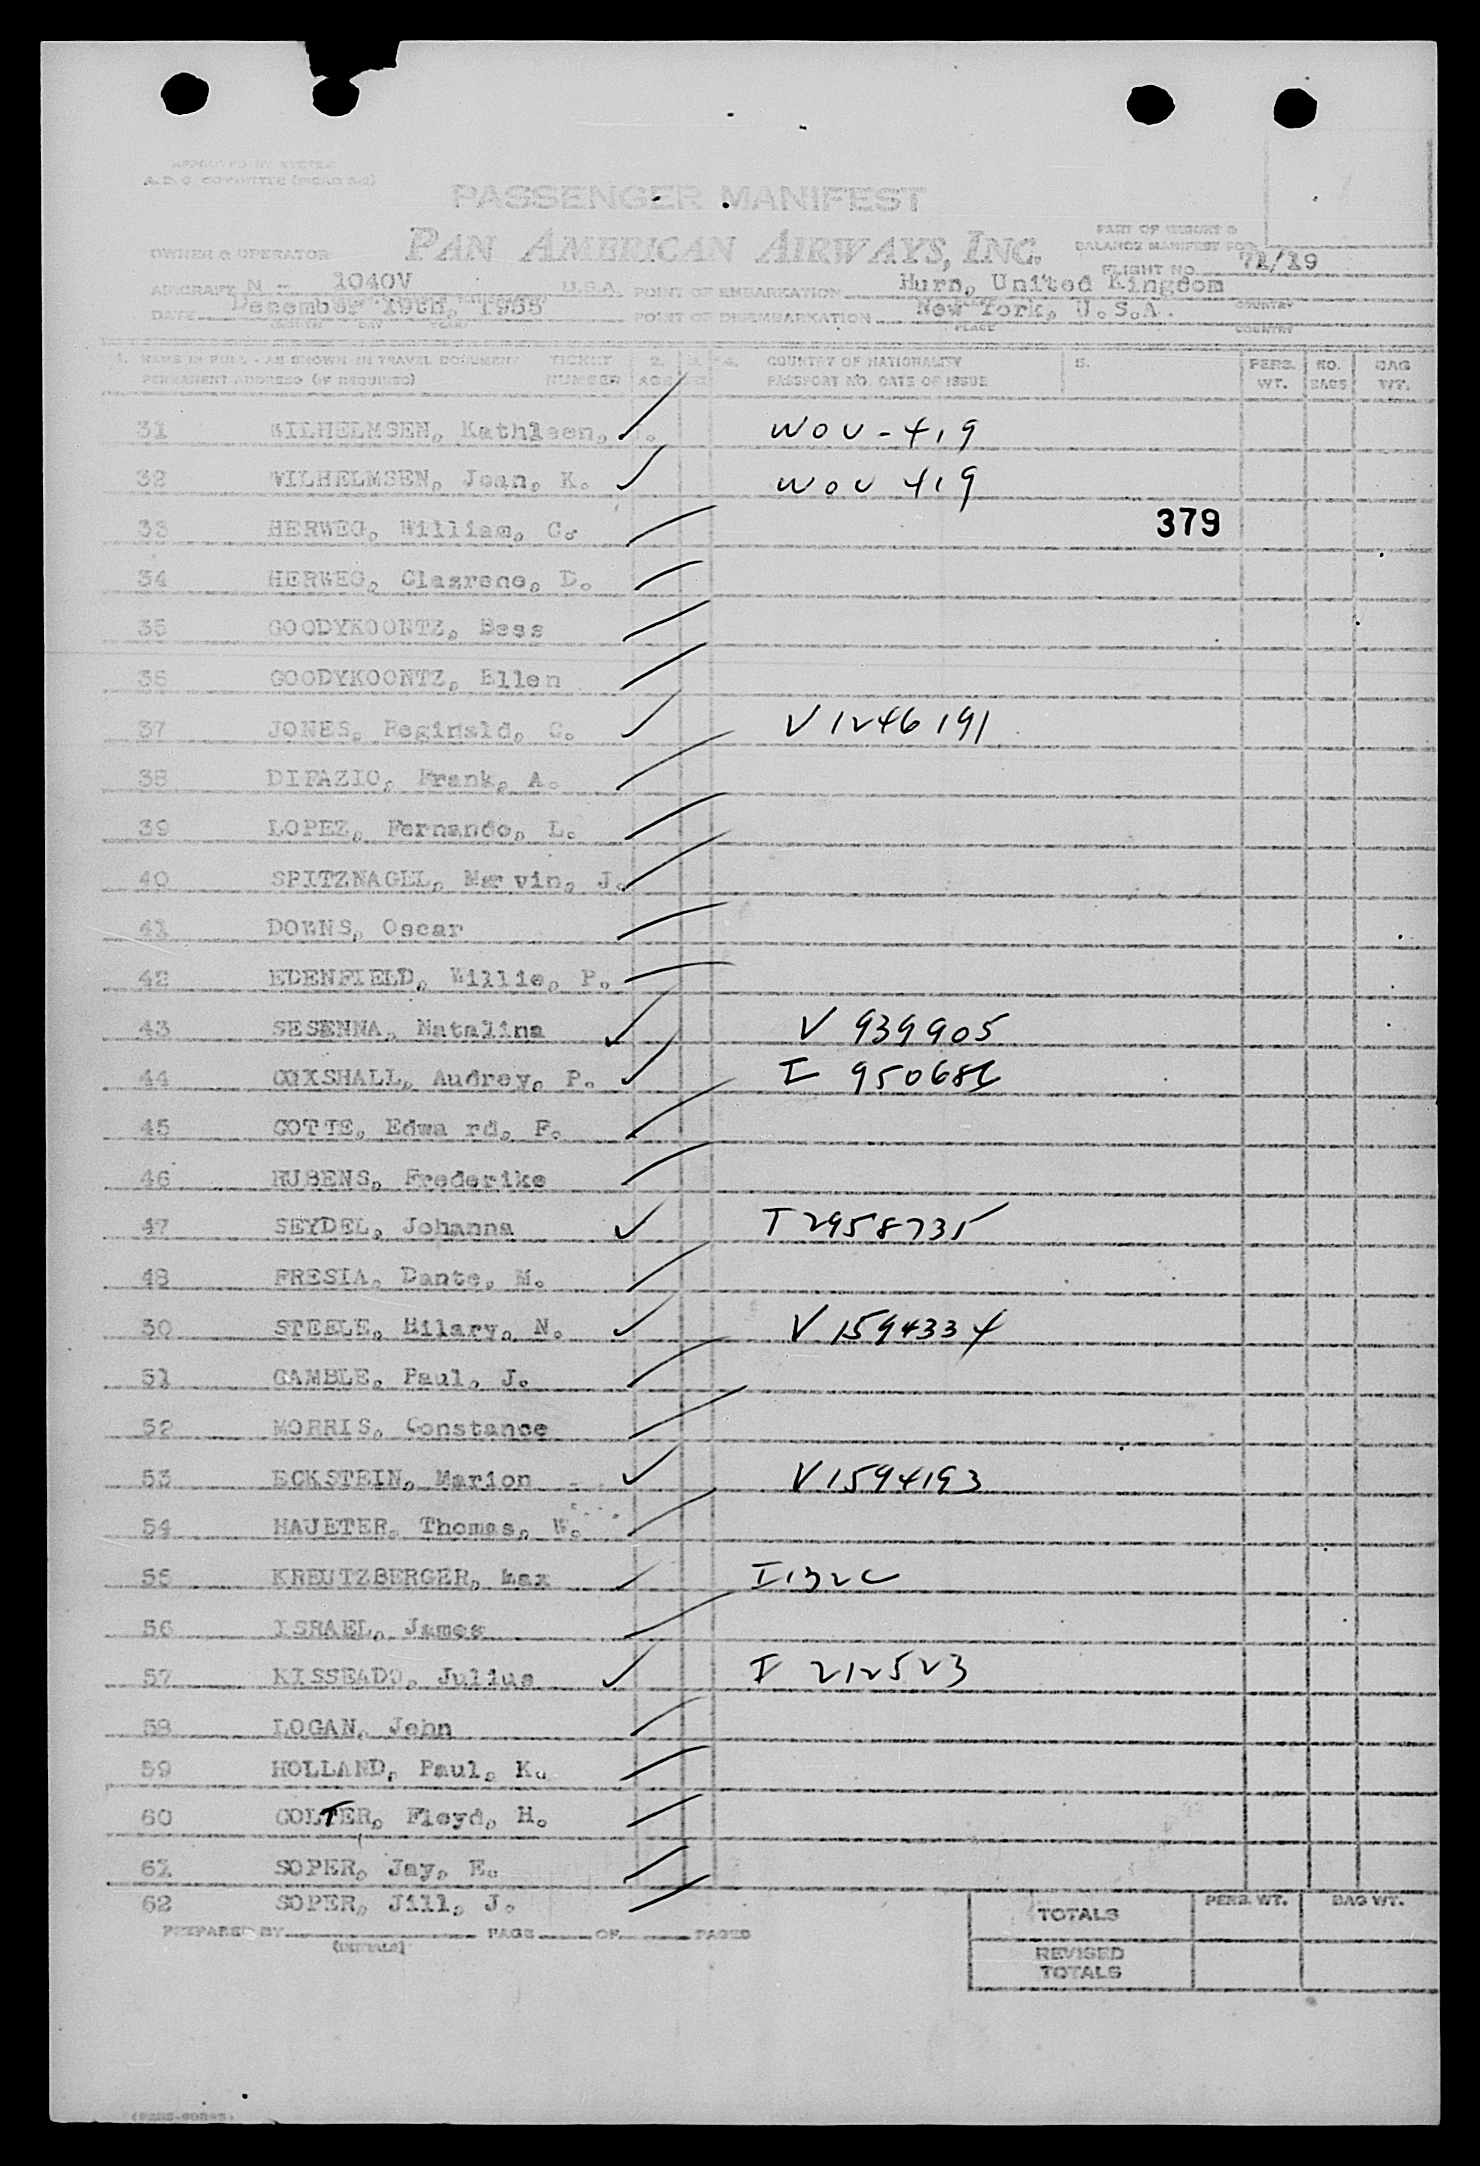 APPROVED BY SYSTEM
A.D.C. COMMITTEE
PASSENGER MANIFEST
PART OF WEIGHT &
BALANCE MANIFEST FOR
OWNER & OPERATOR PAN AMERICAN AIRWAYS, INC.
FLIGHT NO. 71/19
AIRCRAFT N - 1040V U.S.A. POINT OF EMBARKATION Hurn, United Kingdom
COUNTRY
DATE December 19th, 1955 POINT OF DISEMBARKATION New York, U.S.A.
MONTH DAY YEAR PLACE COUNTRY
1. NAME IN FULL - AS SHOWN IN TRAVEL DOCUMENT TICKET 2. 3. 4. COUNTRY OF NATIONALITY 5. PERS. NO. BAG
PERMANENT ADDRESS (IF REQUIRED) NUMBER AGE SEX PASSPORT NO. DATE OF ISSUE WT. BAGS WT.
31 WILHELMSEN, Kathleen, WOV-419
32 WILHELMSEN, Jean, K. WOV 419
33 HERWEG, William, C. 379
34 HERWEG, Clazrene, D.
35 GOODYKOONTZ, Bess
36 GOODYKOONTZ, Ellen
37 JONES, Reginald, C. V 1246191
38 DIFAZIO, Frank, A.
39 LOPEZ, Fernando, L.
40 SPITZNAGEL, Mar vin, J.
41 DOWNS, Oscar
42 EDENFIELD, Willie, P.
43 SESENNA, Natalina V 939905
44 COXSHALL, Audrey, P. I 950686
45 GOTIE, Edwa rd, F.
46 RUBENS, Frederike
47 SEYDEL, Johanna T2958735
48 FRESIA, Dante, M.
50 STEELE, Hilary, N. V 1594334
51 GAMBLE, Paul, J.
52 MORRIS, Constance
53 ECKSTEIN, Marion V1594193
54 HAUETER, Thomas, W.
55 KREUTZBERGER, Max I132C
56 ISRAEL, James
57 KISSEADO, Julius I 212523
58 LOGAN, John
59 HOLLAND, Paul, K.
60 COLTER, Floyd, H.
61 SOPER, Jay, E.
62 SOPER, Jill, J.
TOTALS PERS. WT. BAG WT.
PREPARED BY PAGE OF PAGES
(INITIALS)
REVISED
TOTALS